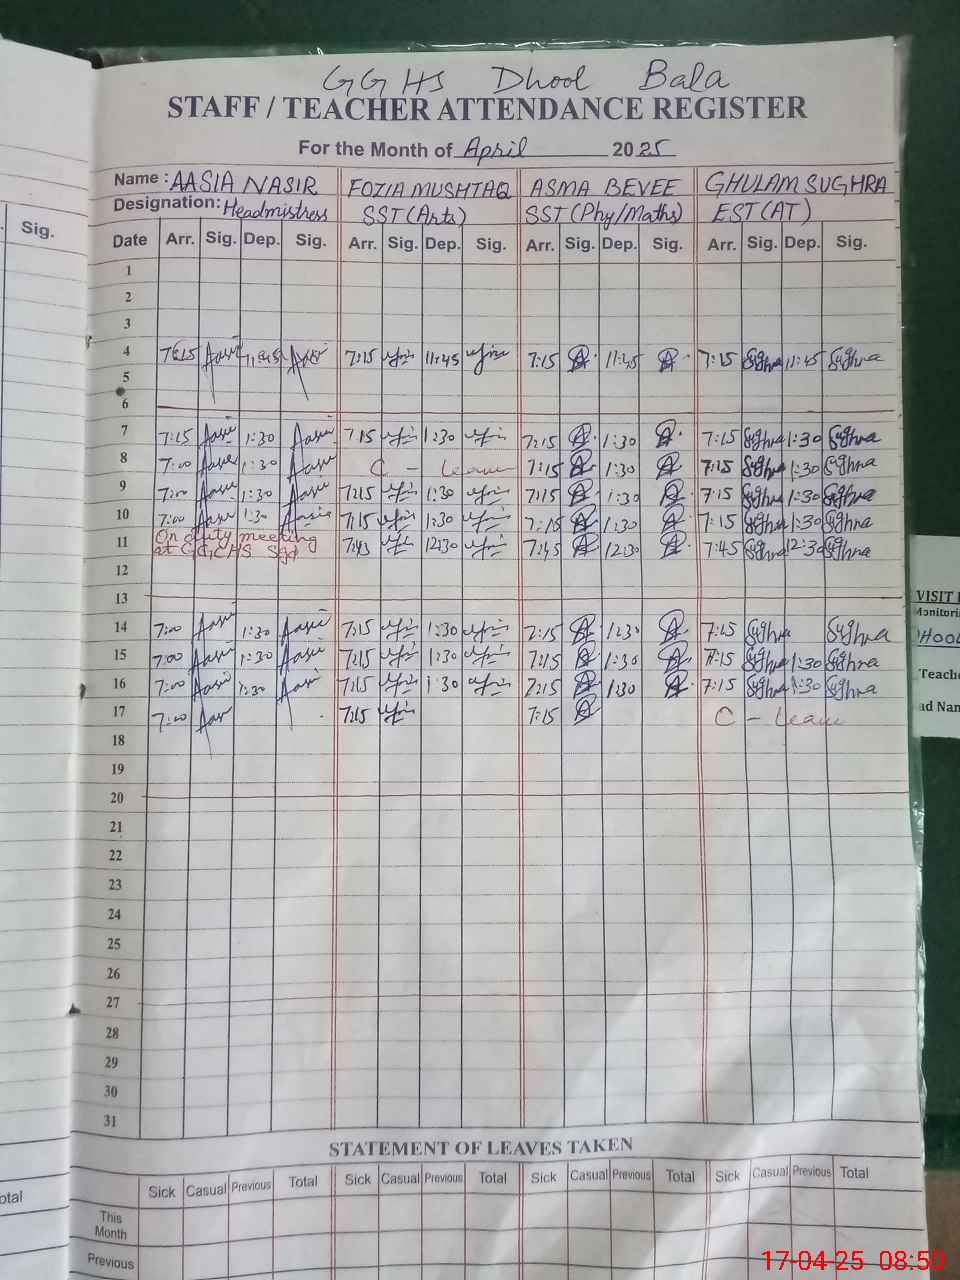 GGHS Dhool Bala
STAFF / TEACHER ATTENDANCE REGISTER
For the Month of April 2025
Name : AASIA NASIR FOZIA MUSHTAQ ASMA BEVEE GHULAM SUGHRA
Designation: Headmistress SST (Arts) SST (Phy/Maths) EST (AT)
Sig.
Date Arr. Sig. Dep. Sig. Arr. Sig. Dep. Sig. Arr. Sig. Dep. Sig. Arr. Sig. Dep. Sig.
1
2
3
4 7:15 Aasii 11:45 Aasii 7:15 11:45 7:15 A 11:45 A 7:15 Sughra 11:45 Sughra
5
6
7 7:15 Aasii 1:30 Aasii 7:15 1:30 7:15 A 1:30 A 7:15 Sughra 1:30 Sughra
8 7:00 Aasii 1:30 Aasii C - Leave 7:15 A 1:30 A 7:15 Sughra 1:30 Sughra
9 7:00 Aasii 1:30 Aasii 7:15 1:30 7:15 A 1:30 A 7:15 Sughra 1:30 Sughra
10 7:00 Aasii 1:30 Aasii 7:15 1:30 7:15 A 1:30 A 7:15 Sughra 1:30 Sughra
11 On duty meeting at GGCHS Sgd 7:45 12:30 7:45 A 12:30 A 7:45 Sughra 12:30 Sughra
12
13
14 7:00 Aasii 1:30 Aasii 7:15 1:30 7:15 A 1:30 A 7:15 Sughra Sughra
15 7:00 Aasii 1:30 Aasii 7:15 1:30 7:15 A 1:30 A 7:15 Sughra 1:30 Sughra
16 7:00 Aasii 1:30 Aasii 7:15 1:30 7:15 A 1:30 A 7:15 Sughra 1:30 Sughra
17 7:00 Aasii 7:15 7:15 A C - Leave
18
19
20
21
22
23
24
25
26
27
28
29
30
31
STATEMENT OF LEAVES TAKEN
Sick Casual Previous Total Sick Casual Previous Total Sick Casual Previous Total Sick Casual Previous Total
This Month
Previous
VISIT
17-04-25 08:50